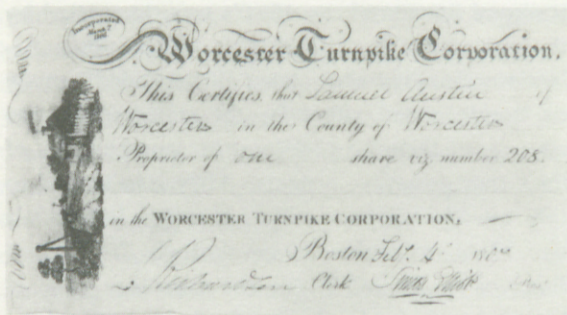 Incorporated
March 7
1806
Worcester Turnpike Corporation.
This Certifies, that Samuel Austin of
Worcester in the County of Worcester
Proprietor of one share viz. number 208.
in the WORCESTER TURNPIKE CORPORATION,
Boston Feb. 4
Richardson Clerk